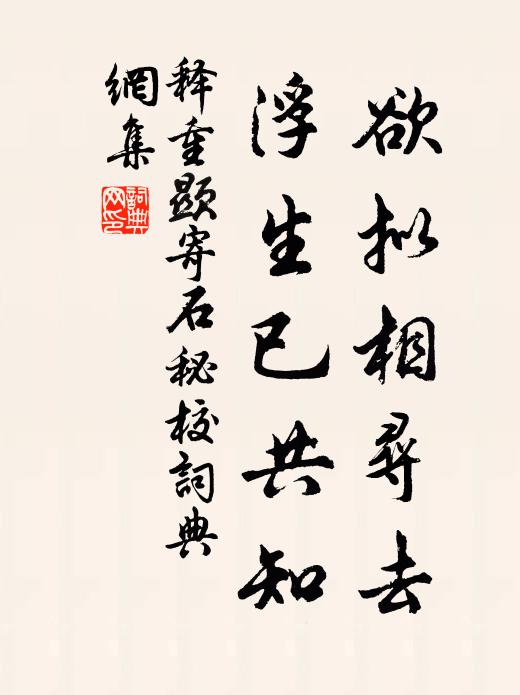 欲拟相尋去
浮生已共知
释重顯寄石秘校詞典
網集
詞典網印